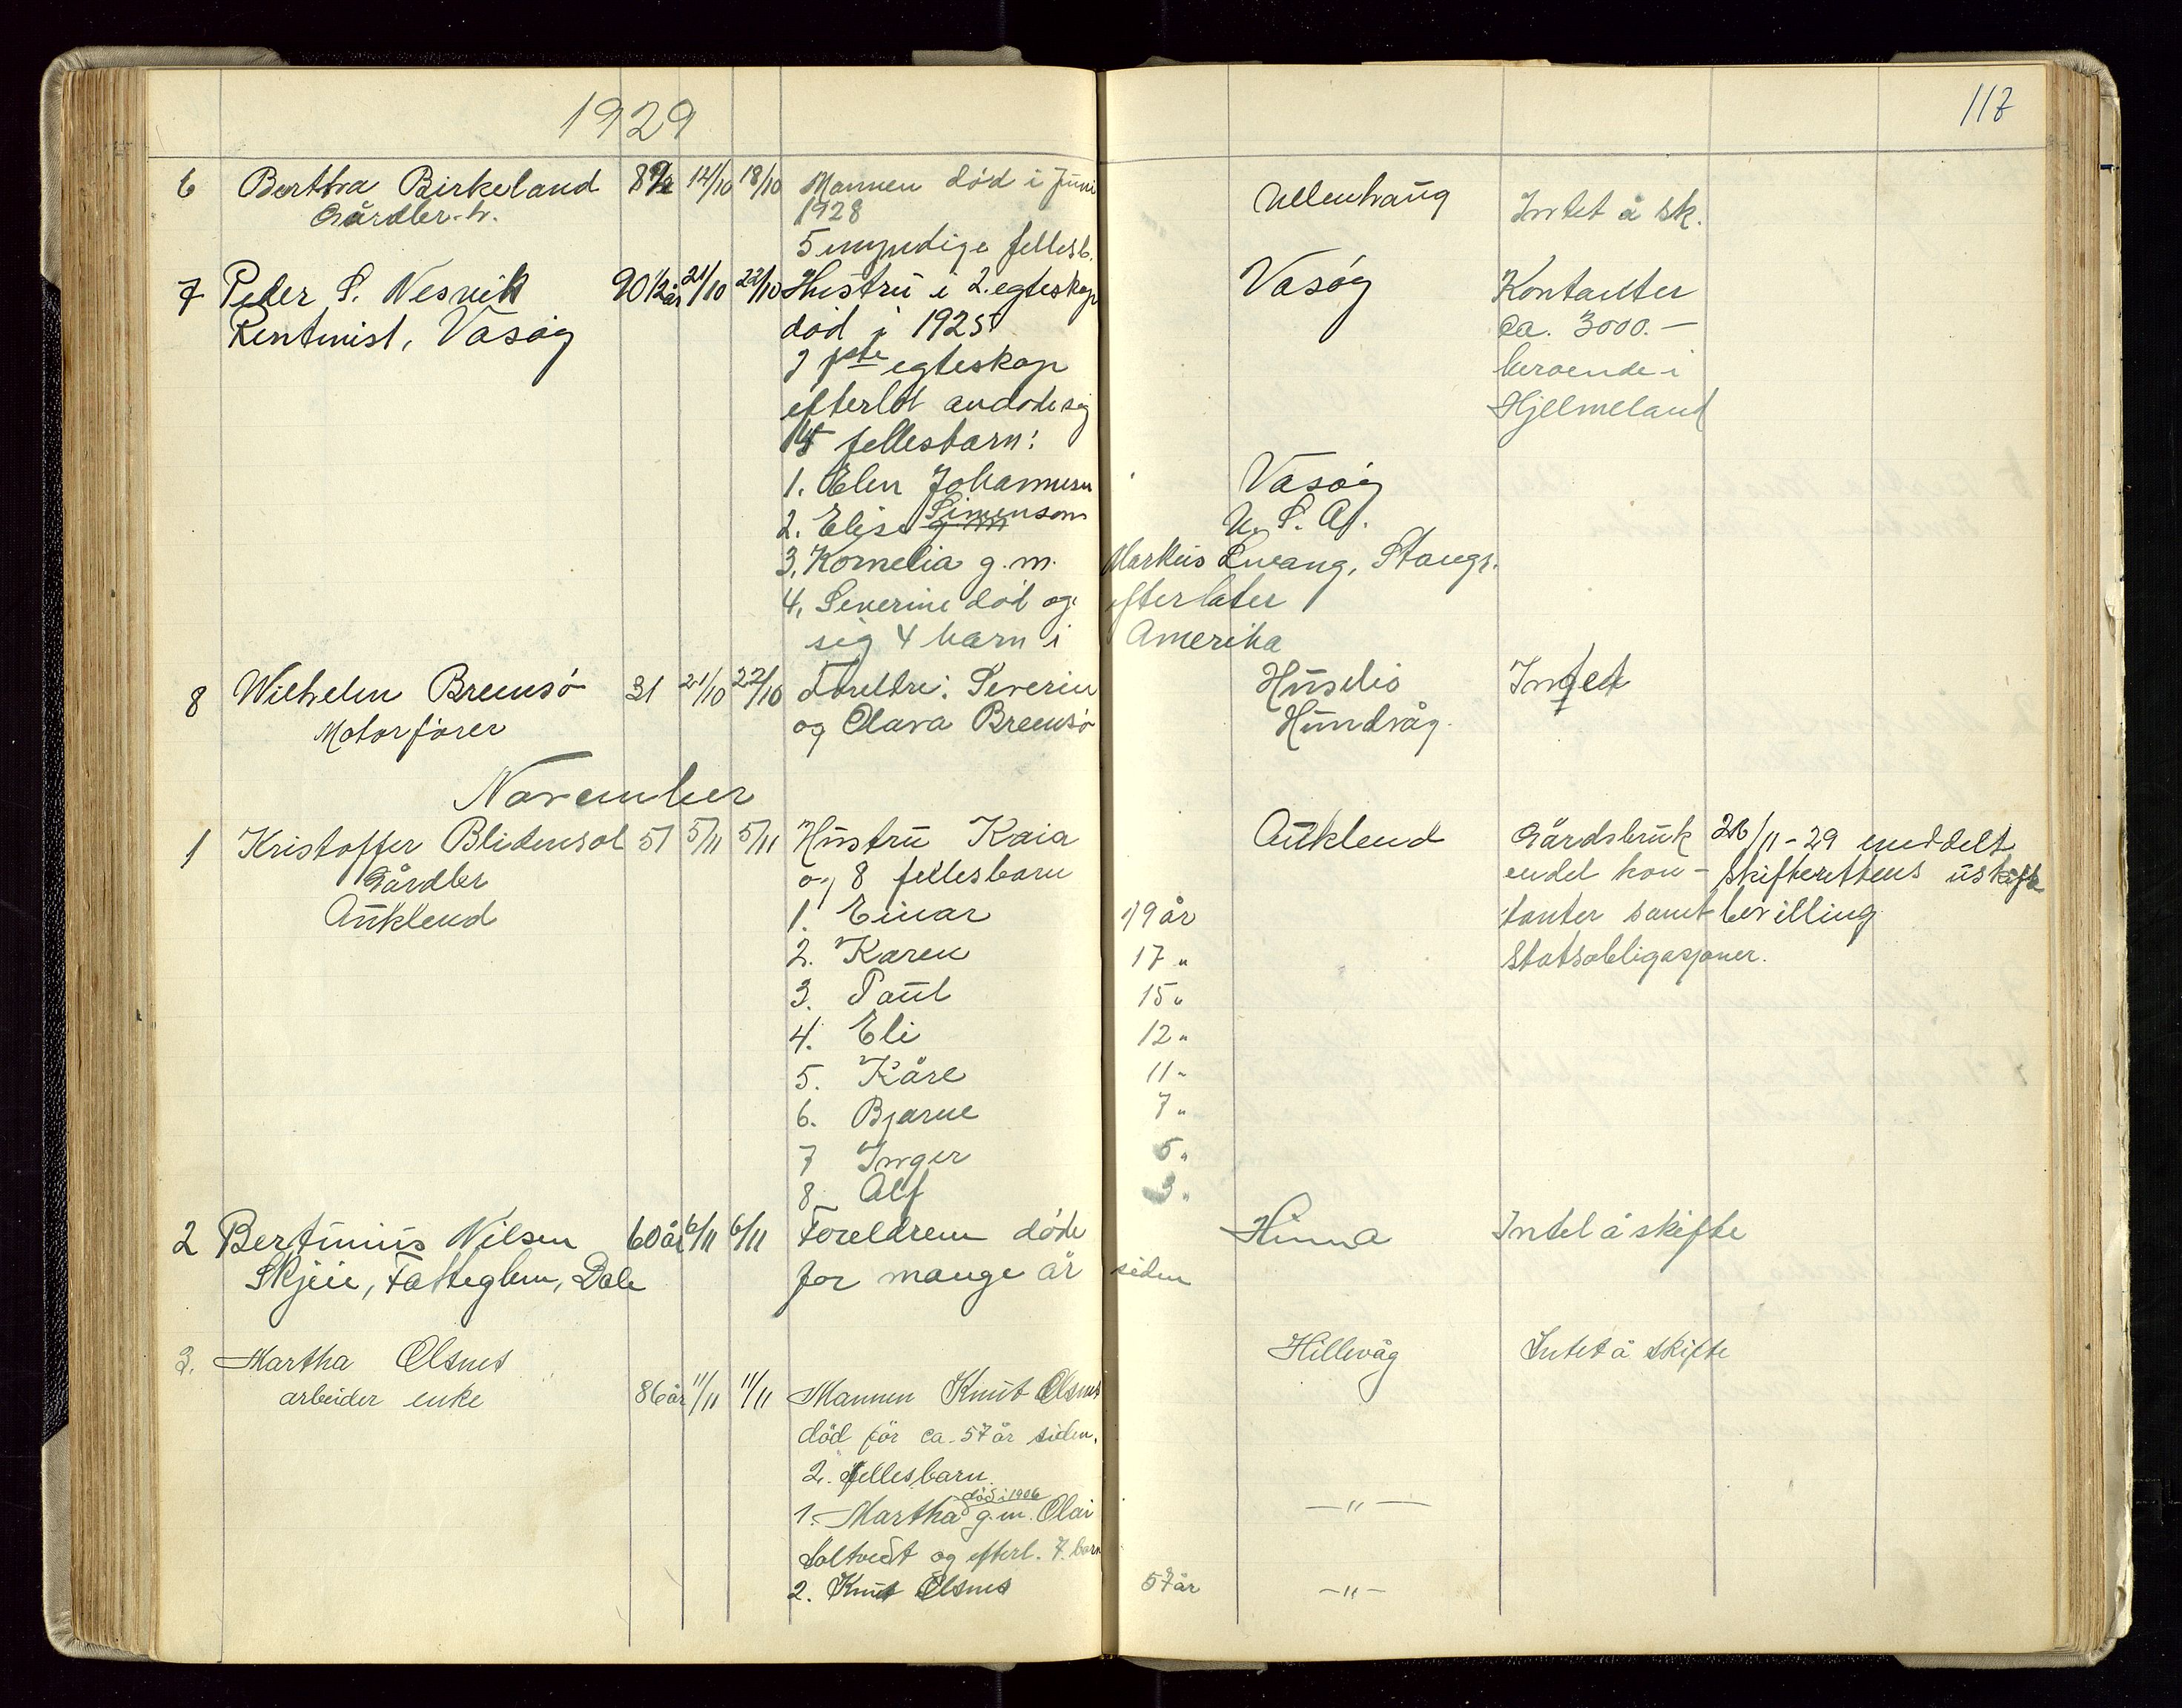 1929
117
6 Bertha Birkeland 14/10 18/10 Mannen död i Juni Ullenhaug Intet å sk.
Gårdbr. h. 1928
5 myndige fellesb.
7 Peder S. Nesvik 90 1/2 år 21/10 22/10 Hustru i 2. egteskap Vasöy Kontanter
Rentenist, Vasöy död i 1925 ca. 3000.-
I 1ste egteskap beroende i
efterlot avdöde sig Hjelmeland
fellesbarn:
1. Elen Johannesen Vasöy
2. Elise Simenson U. S. A.
3. Kornelia g. m. Markus Kvang, Stangs.
4. Severine död og efterlater
sig 4 barn i Amerika
8 Wilhelm Bremsö 31 21/10 22/10 Foreldre: Severin Huselio Intet
Motorförer og Olava Bremsö Hundvåg.
November
1 Kristoffer Blidensol 51 5/11 5/11 Hustru Kaia Auklend Gårdsbruk 26/11-29 meddelt
Gårdbr og 8 fellesbarn endel kon- skifterettens uskifte
Auklend 1. Einar 19 år tanter samt bevilling
2. Karen 17 " Statsobligasjoner.
3. Paul 15 "
4. Eli 12 "
5. Kåre 11 "
6. Bjarne 7 "
7 Inger 5 "
8 Alf 3 "
2 Bertinius Nilsen 60 år 6/11 6/11 Foreldrene döde Hinna Intet å skifte
Skjeie, Fatteglem, Dale for mange år siden
3. Martha Olsnes Hillevåg Intet å skifte
arbeider enke 86 år 11/11 11/11 Mannen Knut Olsnes
död för ca. 57 år siden.
2. fellesbarn.
död i 1906
1. Martha g. m. Olai —"—
Soltvedt og efterl. 7. barn
2. Knut Olsnes 57 år —"—